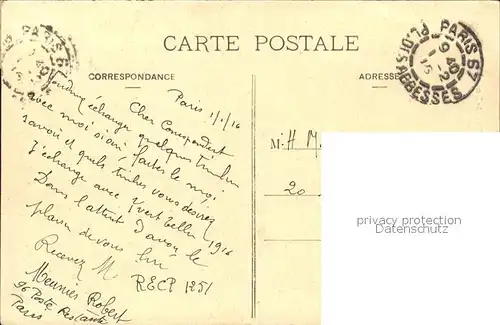 CARTE POSTALE
CORRESPONDANCE
ADRESSE
PARIS 67
PL. DES ABBESSES
9 40
1 - 2
15
Paris 1/1/16
Cher Correspondant
échanger quelques timbres
avec moi si oui faites le moi
savoir et quels timbres vous désirez
J'échange avec Yvert Tellier 1916
Dans l'attente d'avoir le
plaisir de vous lire
Recevez M.
RECP 1251
Meunier Robert
96 Poste Restante
Paris
M: H M.
20
privacy protection
watermark